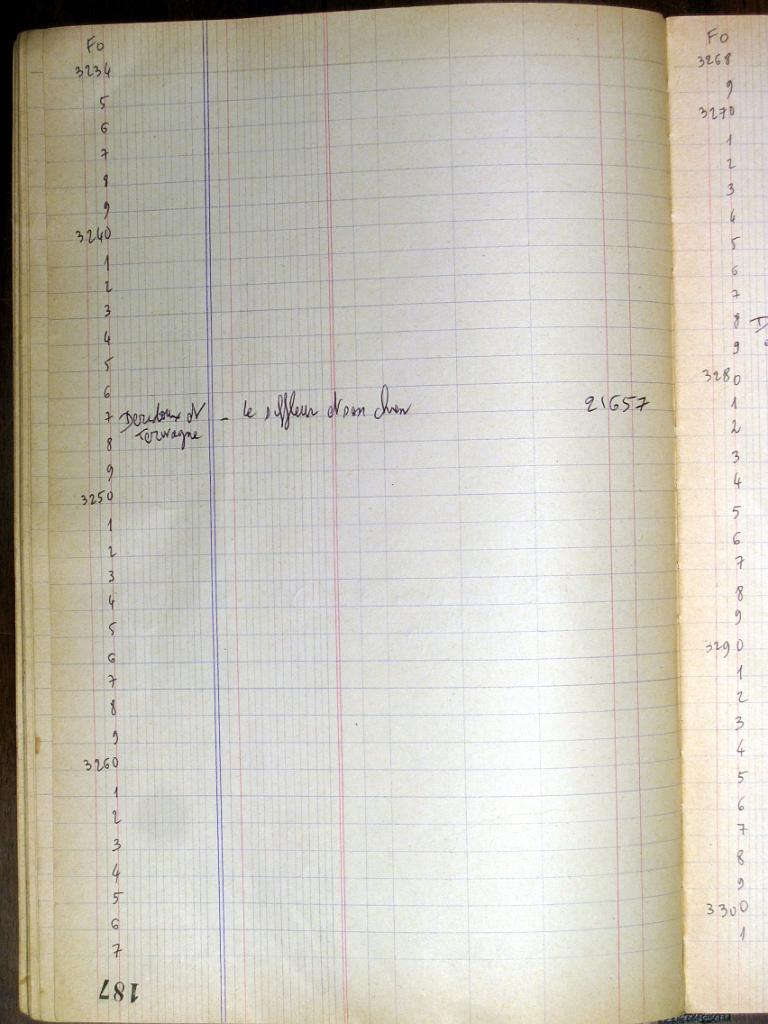 Fo
3234
5
6
7
8
9
3240
1
2
3
4
5
6
7 Deridoux et - Le siffleur et son chien 21657
8 Terwagne
9
3250
1
2
3
4
5
6
7
8
9
3260
1
2
3
4
5
6
7
187
Fo
3268
9
3270
1
2
3
4
5
6
7
8
9
3280
1
2
3
4
5
6
7
8
9
3290
1
2
3
4
5
6
7
8
9
3300
1